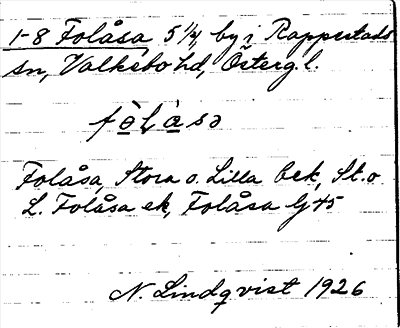 1-8 Folåsa 5 1/4, by i Rappestads
sn, Valkebo hd, Österg.l.
Folåsa, Stora o. Lilla bek, St. o
L. Folåsa ek, Folåsa Gj 45
N. Lindqvist 1926